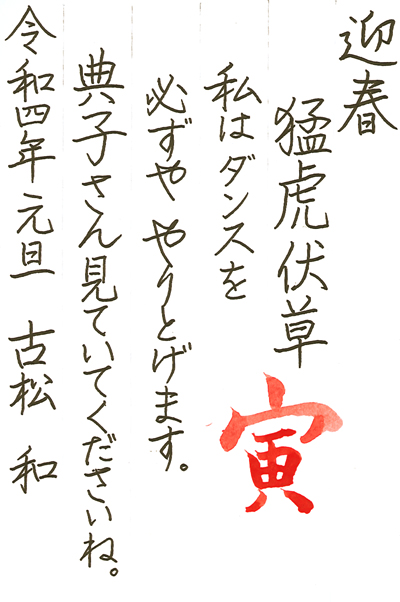 迎春
猛虎伏草
私はダンスを
必ずや やりとげます。
典子さん見ていてくださいね。
令和四年元旦 古松 和
寅